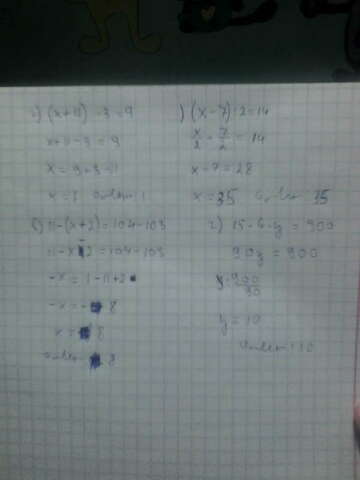 а) (x+11) - 3 = 9
x+11-3 = 9
x = 9+3-11
x = 1 Ответ: 1
) (x-7):2=14
x/2 - 7/2 = 14
x-7=28
x = 35 Ответ 35
11-(x+2)=104-103
11-x-2=104-103
-x=1-11+2
-x=-8
x=8
Ответ 8
г) 15·6·y = 900
90y = 900
900/90
y=10
Ответ: 10